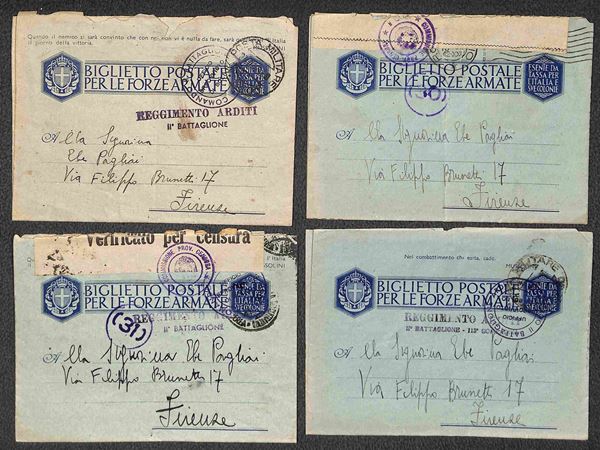 Quando il nemico si sarà convinto che con noi non vi è nulla da fare, sarà
il giorno della vittoria.
POSTA MILITARE
BIGLIETTO POSTALE
PER LE FORZE ARMATE
ESENTE DA
TASSA PER
ITALIA E
REGGIMENTO ARDITI
II° BATTAGLIONE
A lla Signorina
Ebe Pagliai
Via Filippo Brunetti 17
Firenze
BIGLIETTO POSTALE
PER LE FORZE ARMATE
ESENTE DA
TASSA PER
ITALIA E
SVE COLONIE
A lla Signorina Ebe Pagliai
Via Filippo Brunetti 17
Firenze
Verificato per censura
COMMISSIONE PROV. CENSURA
BIGLIETTO POSTALE
PER LE FORZE ARMATE
ESENTE DA
TASSA PER
ITALIA E
SVE COLONIE
REGGIMENTO
II° BATTAGLIONE
(31)
A lla Signorina Ebe Pagliai
Via Filippo Brunetti 17
Firenze
Nel combattimento chi esita, cade.
BIGLIETTO POSTALE
PER LE FORZE ARMATE
ESENTE DA
TASSA PER
ITALIA E
SVE COLONIE
REGGIMENTO
II° BATTAGLIONE - 113ª
A lla Signorina Ebe Pagliai
Via Filippo Brunetti 17
Firenze